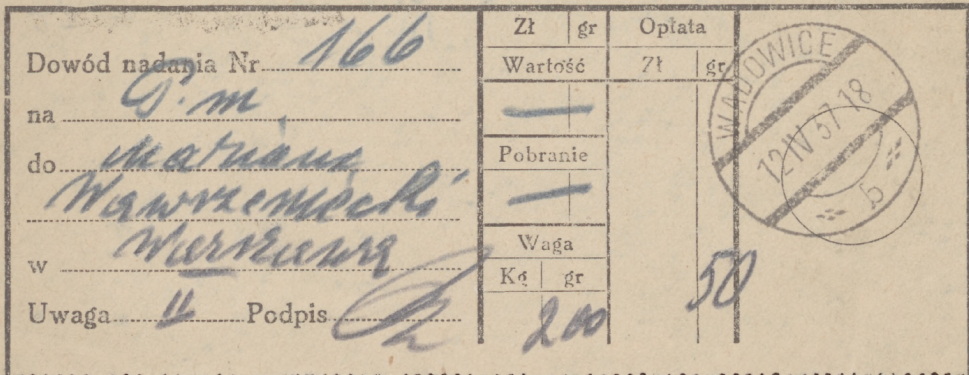 Dowód nadania Nr 166
na P. m.
do Mariana
Wawrzeniecki
w Warszawa
Uwaga II Podpis
Zł gr Opłata
Wartość Zł gr
—
Pobranie
—
Waga
Kg gr
200 50
WADOWICE
12 IV 37 18
b